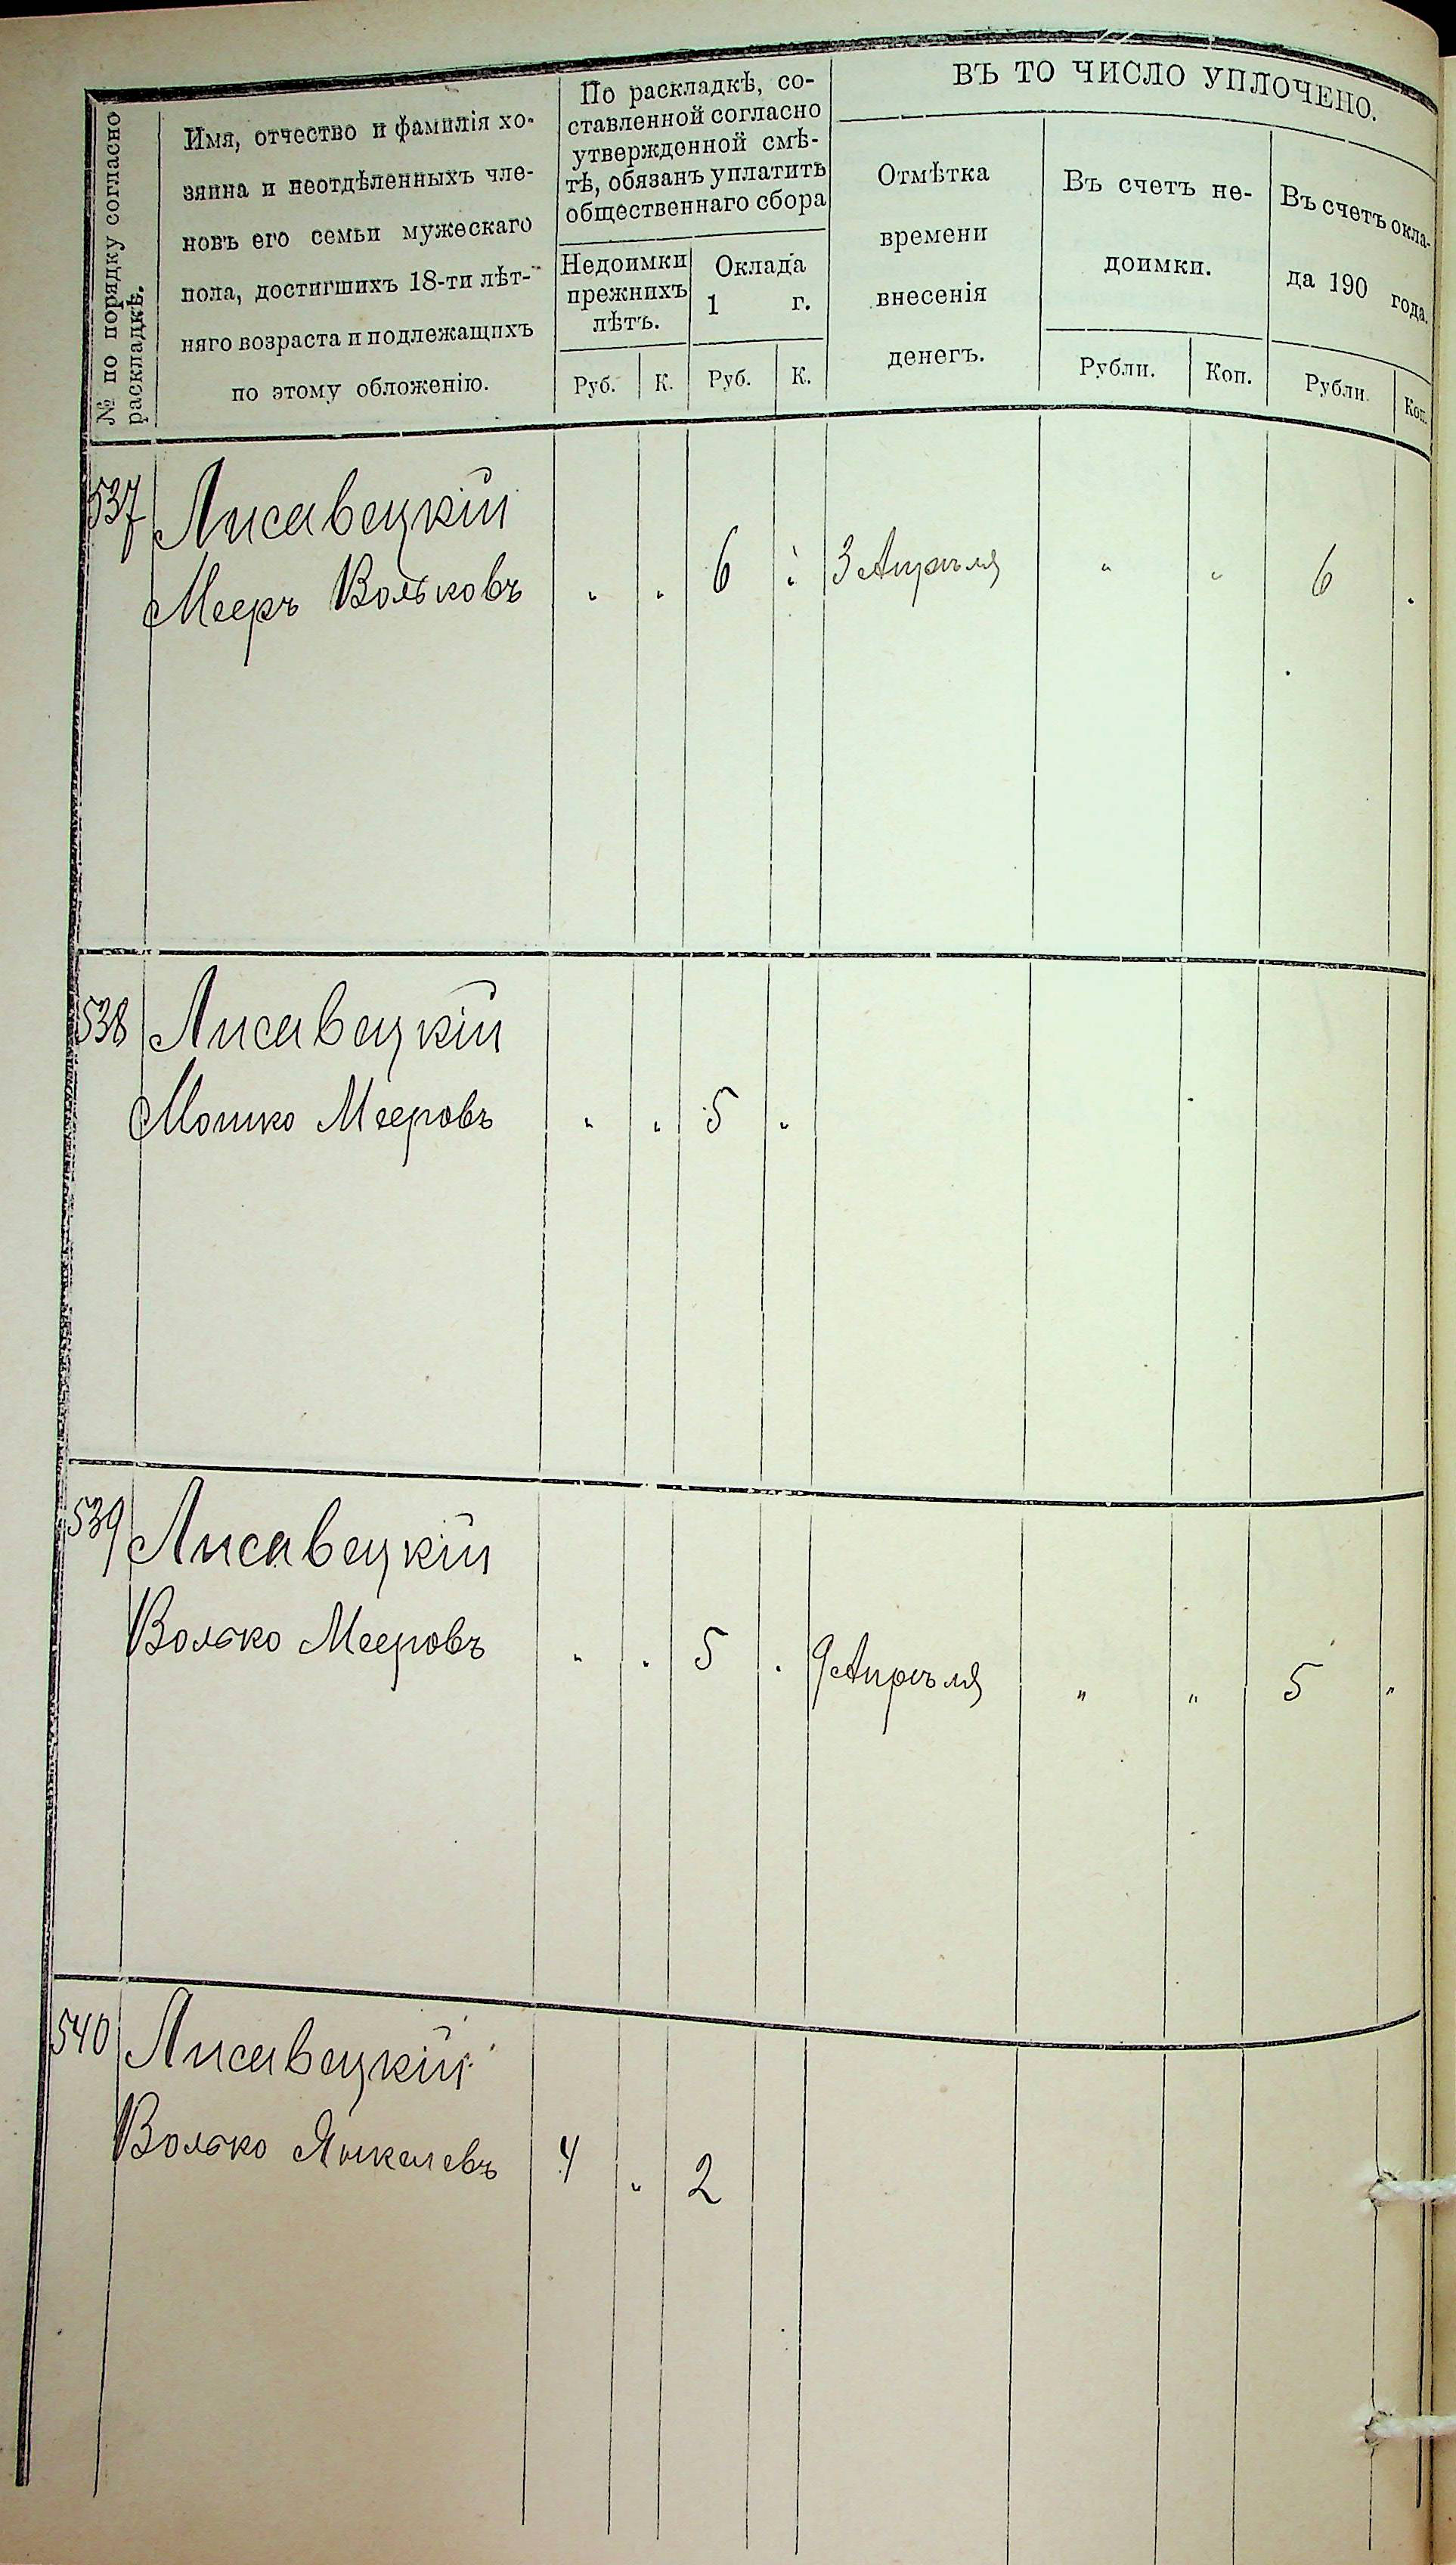 № по порядку согласно
раскладкѣ.
Имя, отчество и фамилія хо-
зяина и неотдѣленныхъ чле-
новъ его семьи мужескаго
пола, достигшихъ 18-ти лѣт-
няго возраста и подлежащихъ
по этому обложенію.
По раскладкѣ, со-
ставленной согласно
утвержденной смѣ-
тѣ, обязанъ уплатить
общественнаго сбора
Недоимки
прежнихъ
лѣтъ.
Оклада
1 г.
Руб.
К.
Руб.
К.
ВЪ ТО ЧИСЛО УПЛОЧЕНО.
Отмѣтка
времени
внесенія
денегъ.
Въ счетъ не-
доимки.
Рубли.
Коп.
Въ счетъ окла-
да 190 года.
Рубли.
Коп.
537 Лисавецкій
Мееръ Вольковъ „ „ 6 „ 3 Апрѣля „ „ 6 „
538 Лисавецкій
Мошко Мееровъ „ „ 5 „
539 Лисавецкій
Волько Мееровъ „ „ 5 „ 9 Апрѣля „ „ 5 „
540 Лисавецкій
Волько Янкелевъ 4 „ 2